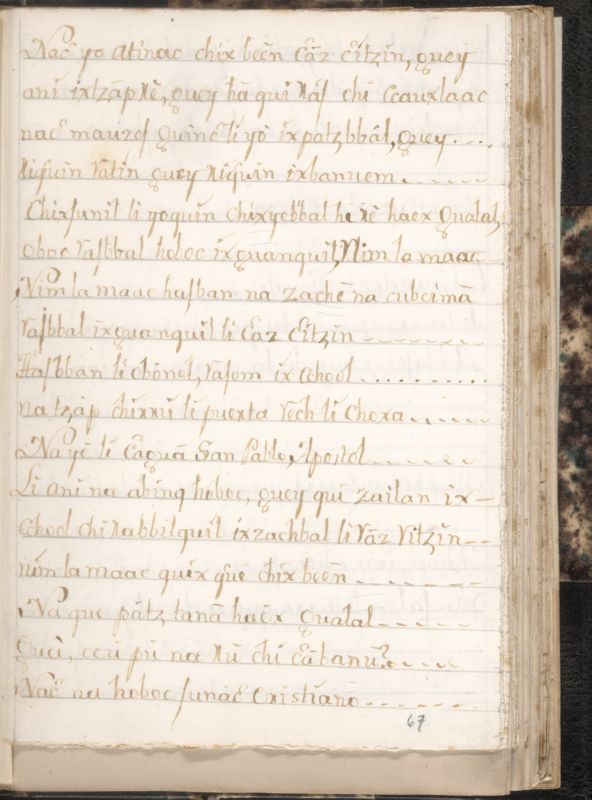 Nac̃ yo atinac chix been Cãz Cĩtzin, quey
ani ixtzãp Nè, quey hà qui Náſ chi Ccauxlaac
nac̃ mauzeſ Quinc̃ li yò ixpatz bbàl, Quey ....
Niquin Vatin quey Niquin ixbanuem ......
Chixſunil li yoquin chixyebbal he rè haex Qualal,
oboc Vaſbbal hoboc ixquanquil, Nim la maac
Nim la maac haſban na zachè na cubcimà
Vaſbbal ixquanquil li Cãz Cĩtzin .......
Haſbban li Obònel, Vaſom ix Cchool ..........
na tzàp chixxù li puexta Vech li Choxa ......
Na yè li Caquã San Pablo, Apostol ......
Li ani na abinq hoboc, quey qui zailan ix-
Cchool chi Nabbilquil ixzachbal li Vãz Vitzin--
nim la maac quix que chix been ........
Na que pàtz tanà haex Qualal .....
Quci, ccù pù na Nù chi Cãbanù? ....
Nac̃ na hoboc ſunàc̃ Cristiano .......
67